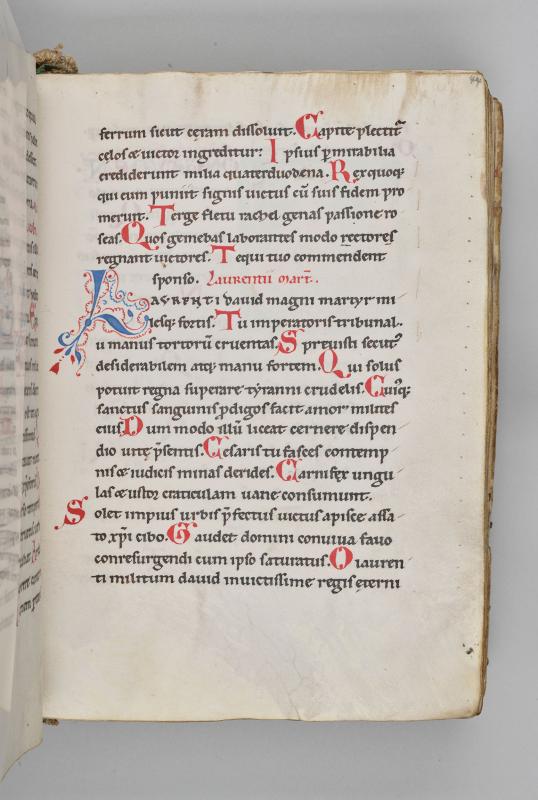 ferrum sicut ceram dissoluit. Capite plectit᷑
celos & uictor ingreditur: Ipsius p̲mirabilia
crediderunt milia quaterduodena. Rex quoq;
qui eum puniit signis uictus cū suis fidem pro
meruit. Terge fletu rachel genas passione ro
seas. Quos gemebas laborantes modo rectores
regnant uictores. Te qui tuo commendent
sponso. Laurentii mart̄.
LAVRENTI dauid magni martyr mi
lesq; fortis. Tu imperatoris tribunal.
u manus tortorū cruentas. Spreuisti secut᷒
desiderabilem atq; manu fortem. Qui solus
potuit regna superare tyranni crudelis. Cui᷒q;
sanctus sanguinis p̲digos facit amor milites
eius. Dum modo illū liceat cernere dispen
dio uite p̄sentis. Cesaris tu fasces contemp
nis & iudicis minas derides. Carnifex ungu
las & ustor craticulam uane consumunt.
Solet impius urbis p̄fectus uictus apisce assa
to, xp̄i cibo. Gaudet domini conuiua fauo
conresurgendi cum ipso saturatus. O lauren
ti militum dauid inuictissime regis eterni